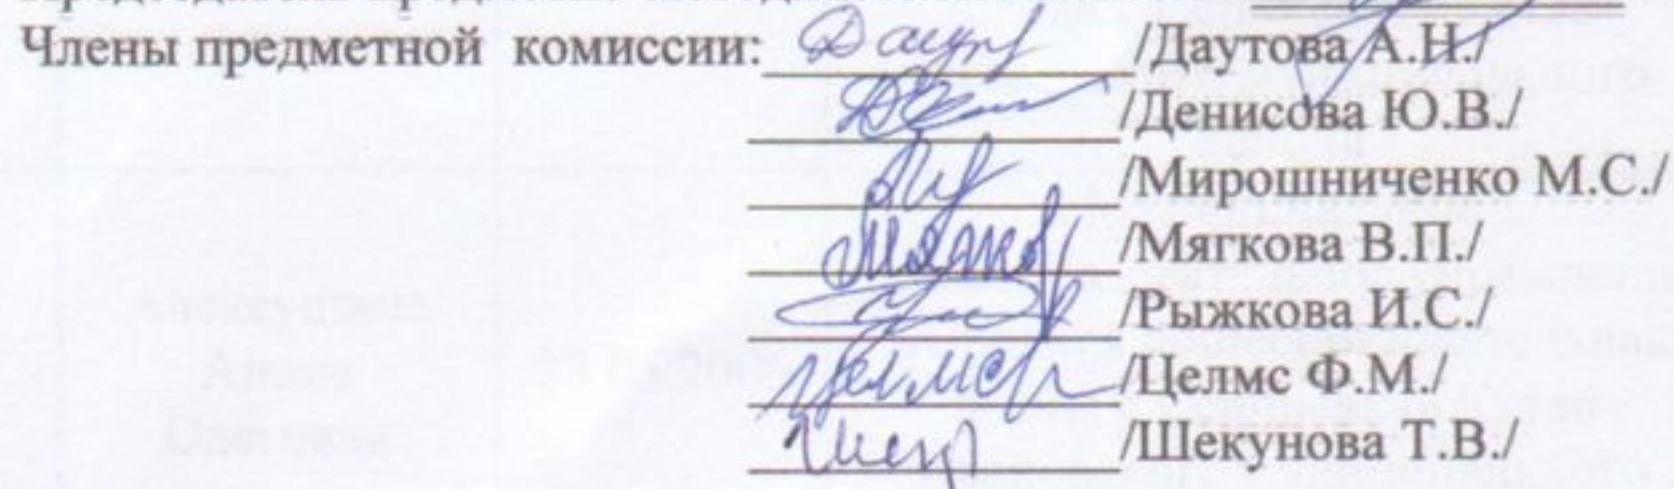 Члены предметной комиссии: Даут /Даутова А.Н./
/Денисова Ю.В./
/Мирошниченко М.С./
/Мягкова В.П./
/Рыжкова И.С./
Целмс /Целмс Ф.М./
/Шекунова Т.В./